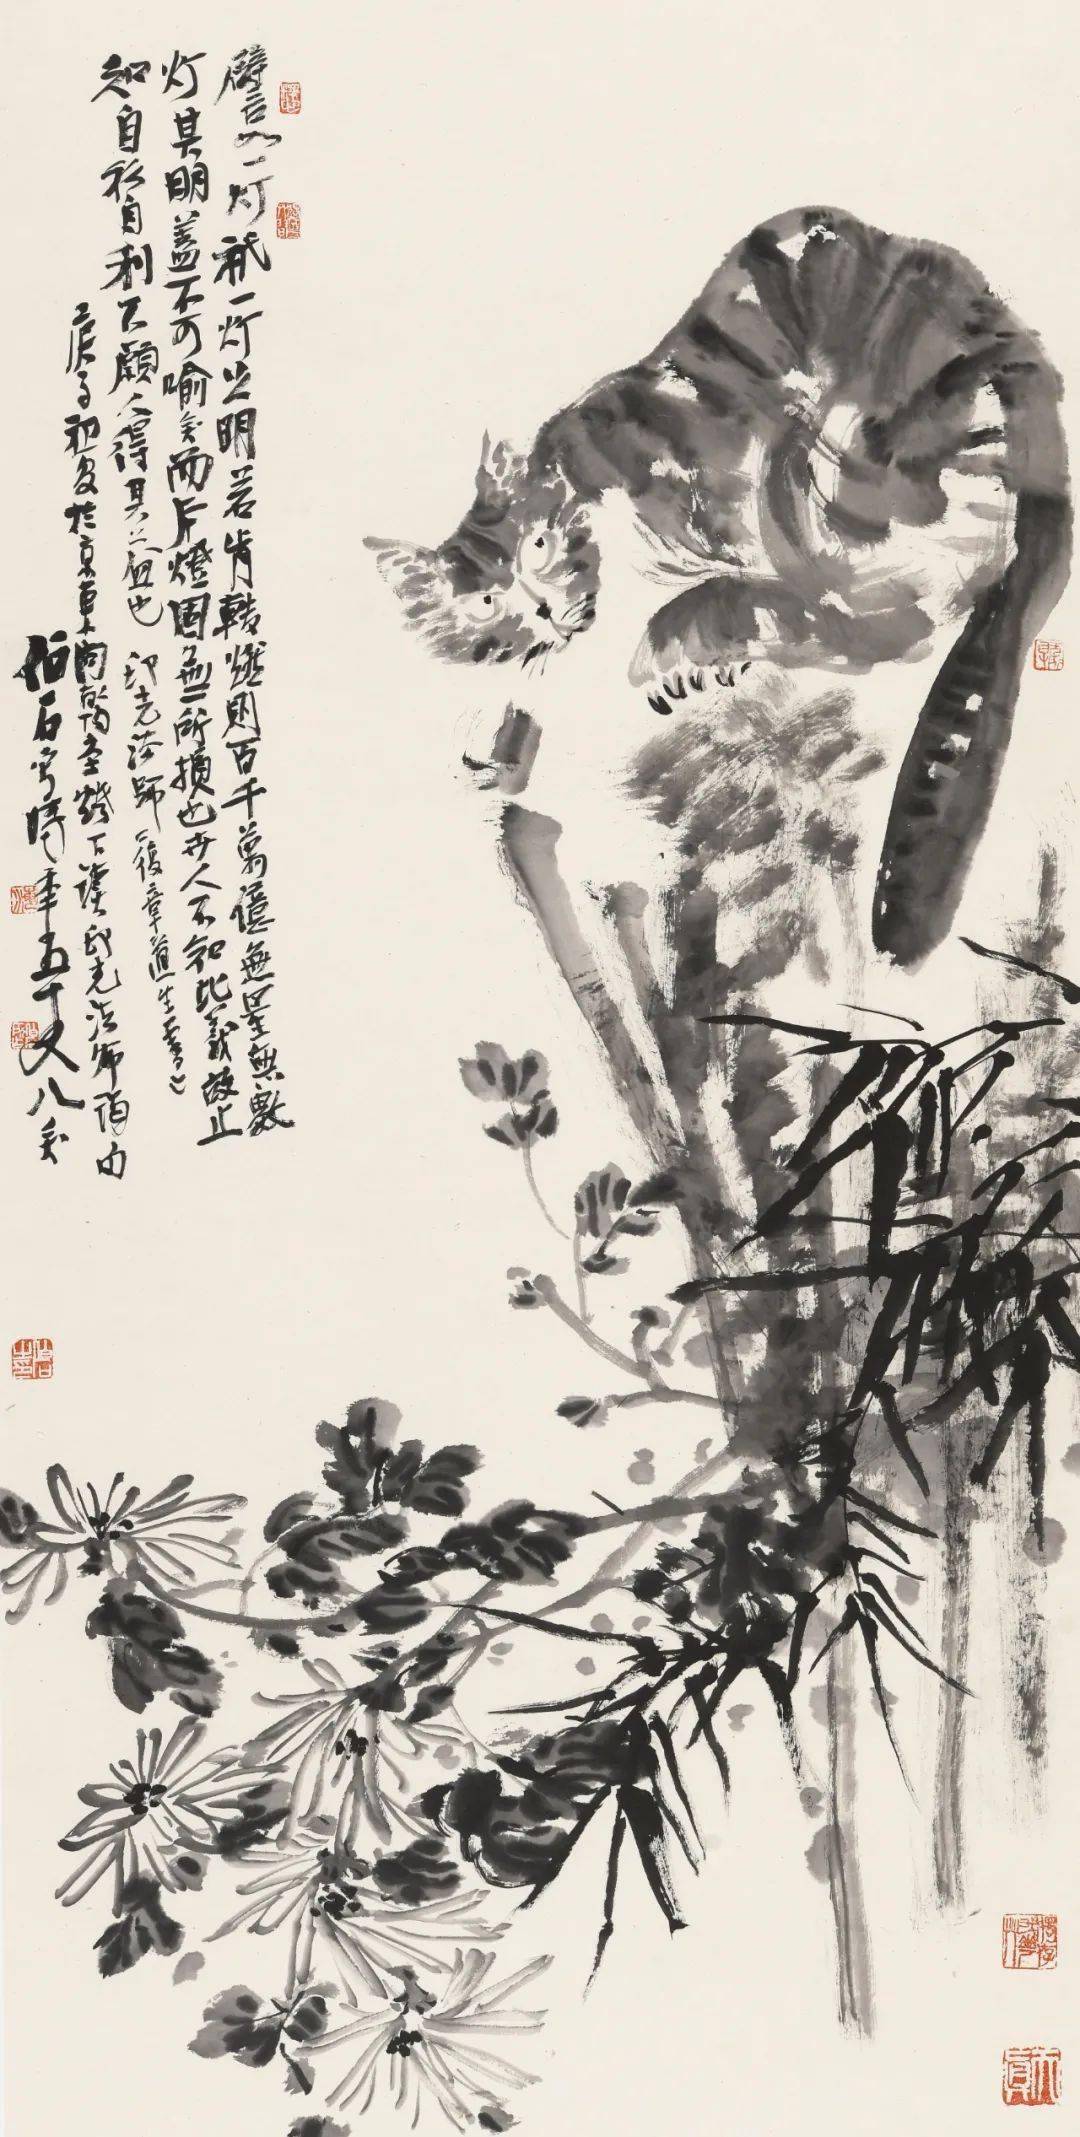 譬如一灯祇一灯之明若肯轉燃则百千萬億無量無數
灯其明蓋不可喻矣而本燈固無所損也世人不知此義故止
知自私自利不願人得其益也 印光法師復章道生書
庚子初夏於京東 燈下讀印光法师
伯石 时年五十又八矣